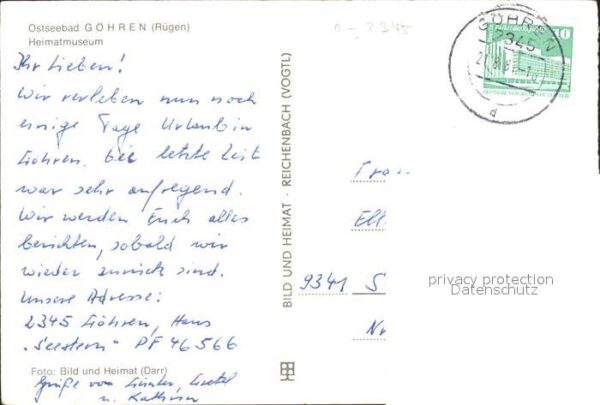 Ostseebad GÖHREN (Rügen)
Heimatmuseum
Ihr Lieben!
Wir verleben nun noch
einige Tage Urlaub in
Göhren. Die letzte Zeit
war sehr aufregend.
Wir werden Euch alles
berichten, sobald wir
wieder zurück sind.
Unsere Adresse:
2345 Göhren, Haus
„Seestern" PF 46 566
Foto: Bild und Heimat (Darr)
Grüße von Günter,
u.
BILD UND HEIMAT · REICHENBACH (VOGTL)
2345
GÖHREN
2345
d
10
9341 S
privacy protection
Datenschutz